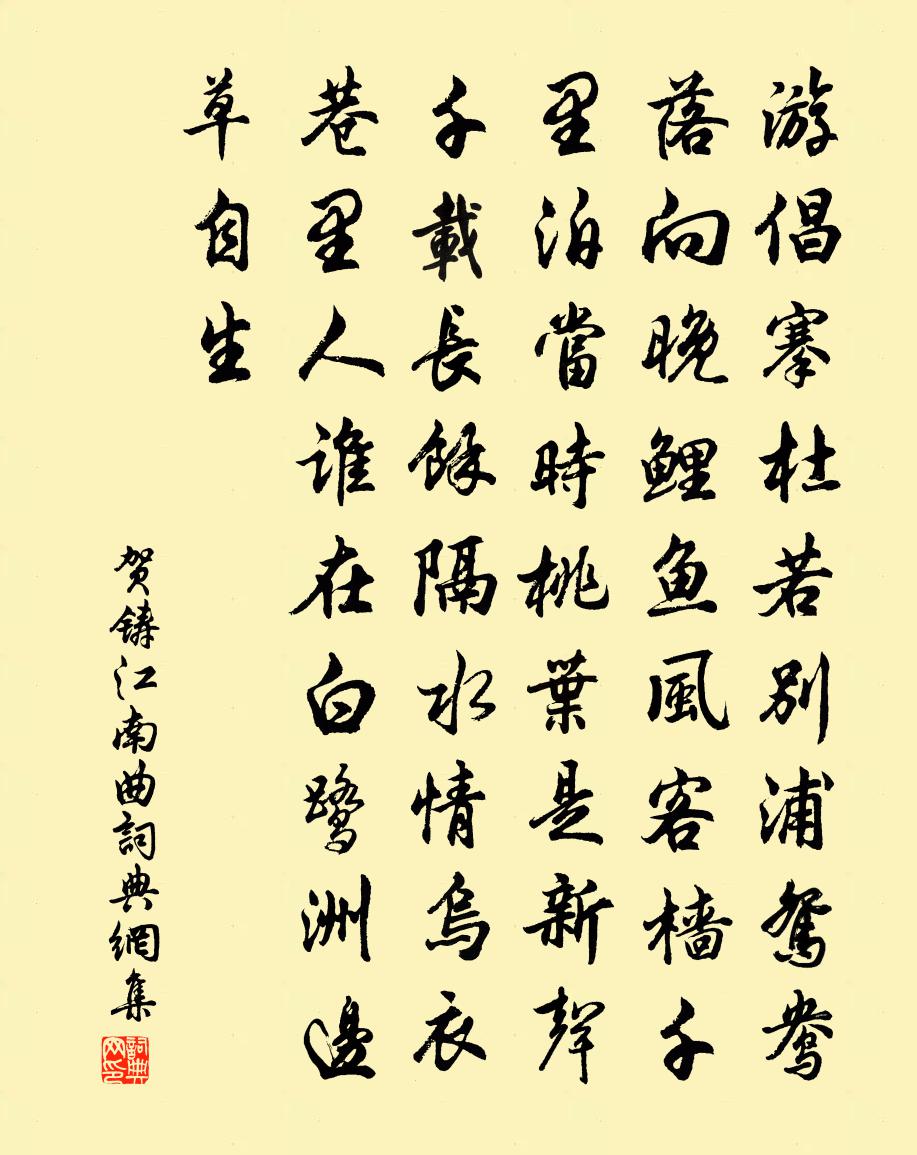 游倡搴杜若別浦鴛鴦
落向晚鯉魚風客檣千
里泊當時桃葉是新聲
千載長餘隔水情烏衣
巷里人誰在白鷺洲邊
草自生
贺鑄江南曲詞典網集
詞典网印